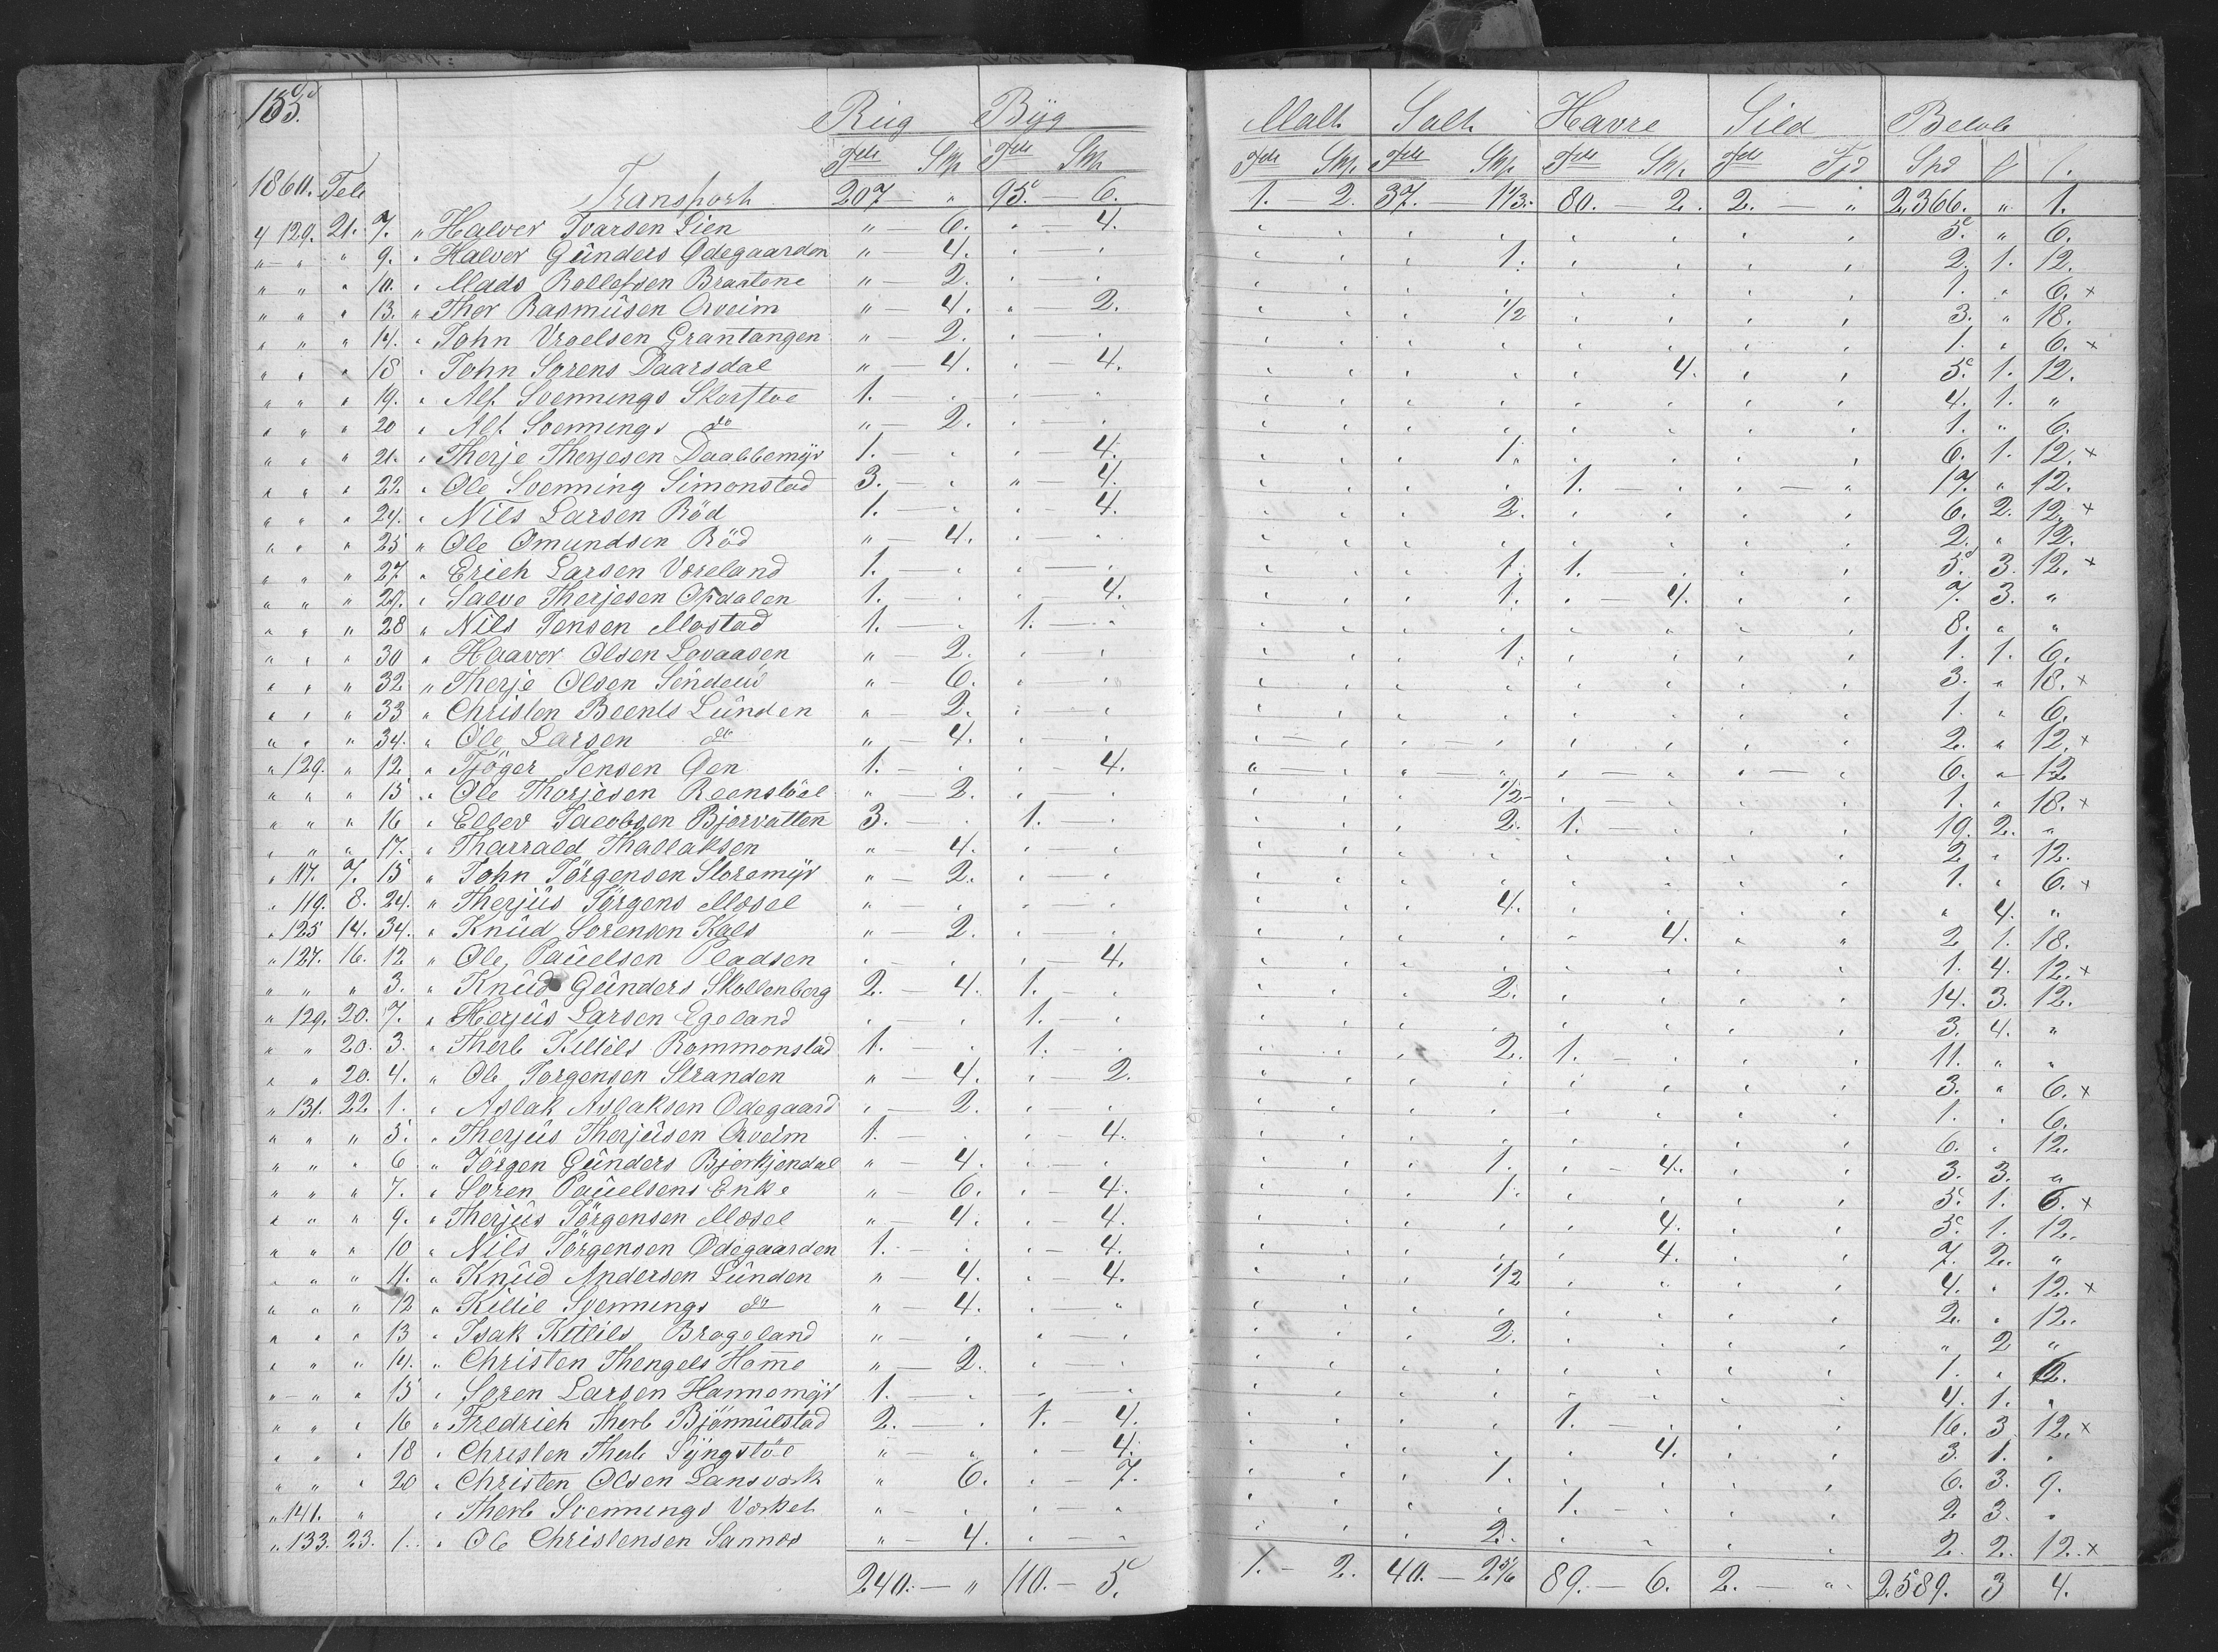 155.
Rüg Byg Malt Salt Havre Sild Beløb
Tdr Skp Tdr Skp Tdr Skp. Tdr Skp. Tdr Skp. Tdr Fjd Spd
1860. Feb Transport 207 — " 95. — 6. 1. — 2. 37. — 1 1/3. 80. — 2. 2. — " 2,366. " 1.
4 129. 21. 7. " Halvor Ivarsen Lien " — 6. " — 4. 5. " 6.
" — " " 9. " Halvor Gûnders Ødegaarden " — 4. 1. 2. 1. 12.
" " " 10. " Mads Rollefsen Braatene " — 2. 1. " 6. ×
" " " 13. " Thor Rasmûsen Aaveim " — 4. " 2. 1/2 3. " 18.
" " " 14. " John Vroelsen Grantangen " — 2. 1. " 6. ×
" " " 18 " John Sorens Daarsdal " — 4. " — 4. 4. 5. 1. 12.
" " " 19. " Alf. Svennings Skorstøe 1. 4. 1. "
" " " 20 " Alf. Svennings do " — 2. 1. " 6.
" " " 21. " Therje Therjesen Daablemyr 1. " 4. 1. 6. 1. 12. ×
" " " 22. " Ole Svenning Simonstad 3. — " " — 4. 1. — " 17. " 12.
" " " 24. " Nils Larsen Röd 1. — " " — 4. 2. 6. 2. 12. ×
" " " 25 " Ole Omundsen Röd " — 4. 2. " 12.
" " " 27 " Erich Larsen Voreland 1. — " 1. 1. — " 5. 3. 12. ×
" " " 29. " Salve Therjesen Opdalen 1. — " " — 4. 1. " — 4. 7. 3. "
" " " 28 " Nils Jensen Mostad 1. — " 1. — " 8. " "
" " " 30 " Haavor Olsen Lovaasen " — 2. 1. 1. 1. 6.
" " " 32 " Therje Olsen " — 6. 3. " 18. ×
" " " 33 " Christen Beents Lûnden " — 2. 1. " 6.
" " " 34. " Ole Larsen do " — 4. 2. " 12. ×
" 129. " 12 " Tjöger Jensen Øen 1. — " " — 4. 6. " — 12
" " " 15 " Ole Thorjesen Reenstöel " — 2. 1/2 1. " 18. ×
" " " 16 " Ellev Jacobsen Bjorvatten 3. — " 1. " 2. 1. — " 19. 2. "
" " " 17. " Tharrald Thallaksen " — 4. 2. " 12.
" 117. 7. 15 " John Jörgensen Storemyr " — 2. 1. " 6. ×
" 119. 8. 24. " Therjûs Jörgens Mosel " — " 4. " 4. "
" 125 14. 34. " Knûd Sorensen Kals " — 2. " 4. 2 1. 18.
" 127. 16. 12 " Ole Paûelsen Pladsen " " — 4. 1. 4. 12. ×
" " " 3. " Knûd Gûnders Skollenberg 2. — 4. 1. — " 2. 14. 3. 12.
" 129. 20. 7. " Herjûs Larsen Egeland 1. — " 3. 4. "
" " 20. 3. " Therb Killils Rommonstad 1. 1. 2. 1. — " 11. " "
" " 20. 4. " Ole Jorgensen Stranden " — 4. " 2. 3. " 6. ×
" 131. 22 1. " Aslak Aslaksen Odegaard " — 2. 1. " 6.
" " " 5. " Therjûs Therjûsen Aaveim 1. " — 4. 6. " 12.
" " " 6 " Jörgen Gûnders Bjorkjendal " — 4. 1. " — 4. 3. 3. "
" " " 7. " Soren Paûelsens Enke " — 6. " — 4. 1. 5. 1. 6. ×
" " " 9. " Therjûs Jörgensen Mosel " — 4. " — 4. 4. 5. 1. 12.
" " " 10 " Nils Jörgensen Odegaarden 1. — " " — 4. 4. 7. 2. "
" " " 11. " Knûd Andersen Lûnden " — 4. " — 4. 1/2 4. " 12. ×
" " " 12 " Killil Svennings do " — 4. 2. " 12.
" " " 13 " Isak Kitlils Brageland " — " " — " 2. " 2 "
" " " 14. " Christen Thengels Home " — 2. 1. " 6.
" — " " 15 " Soren Larsen Hannemyr 1. — " 4. 1. "
" " " 16 " Fredrich Therb Bjönnûlstad 2. — " 1. 4. 1. — " 16. 3 12. ×
" " " 18 " Christen Therb Syngstöe " " — 4. 4. 3. 1. "
" " " 20 " Christen Olsen Lansverk " 6. " — 7. 1. 6. 3. 9.
" 141. " " Therb Svennings Verket " — " 1. — " 2 3. "
" 133. 23. 1. " Ole Christensen Sannes " — 4. 2. 2. 2. 12. ×
240. — " 110. — 5. 1. — 2. 40. — 2 5/6 89. — 6. 2. — " 2,589. 3 4.